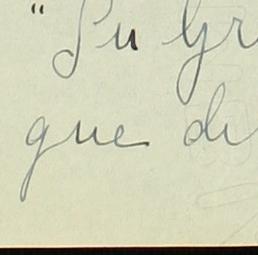 "Su Gr
que di